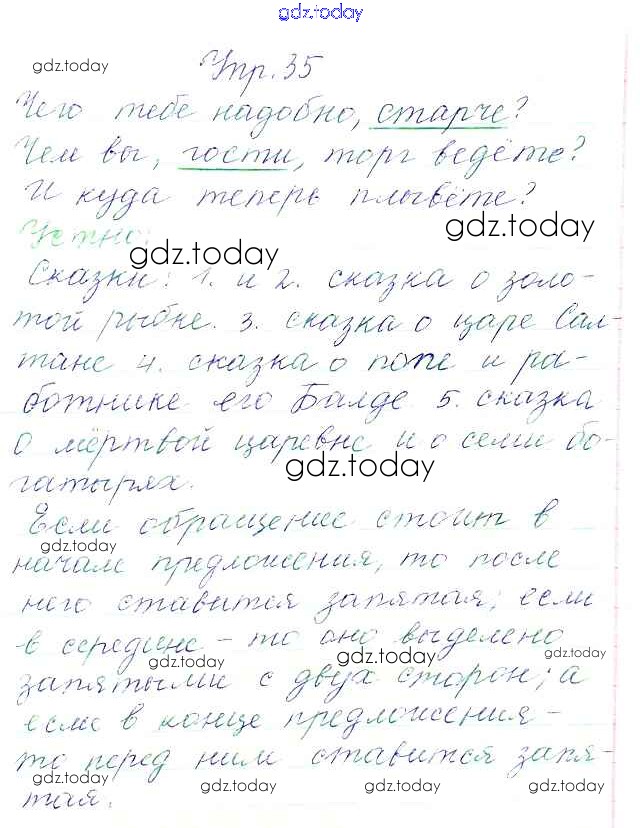 gdz.today
Упр. 35
gdz.today
Чего тебе надобно, старче?
Чем вы, гости, торг ведёте?
И куда теперь плывёте?
gdz.today
Устно:
gdz.today
Сказки: 1. и 2. сказка о золо-
той рыбке. 3. сказка о царе Сал-
тане 4. сказка о попе и ра-
ботнике его Балде 5. сказка
о мёртвой царевне и о семи бо-
gdz.today
гатырях.
Если обращение стоит в
gdz.today
начале предложения, то после
него ставится запятая; если
в середине – то оно выделено
gdz.today gdz.today gdz.today
запятыми с двух сторон; а
если в конце предложения –
то перед ним ставится запя-
gdz.today gdz.today gdz.today
тая.